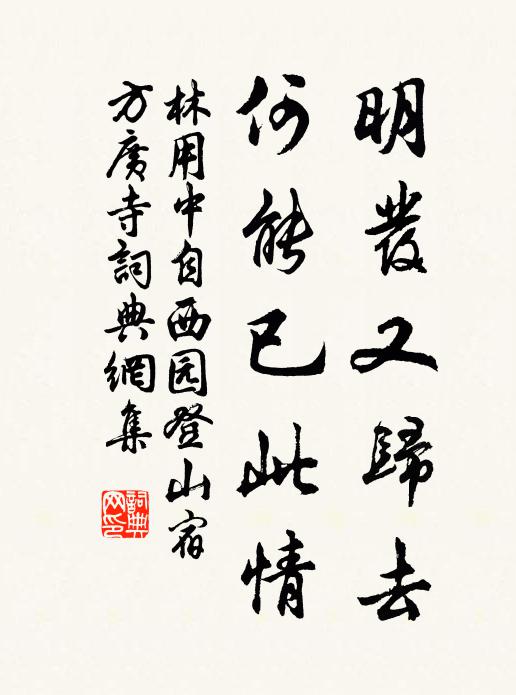 明發又歸去
何能已此情
林用中自西园登山宿
方廣寺詞典網集
詞典
网印